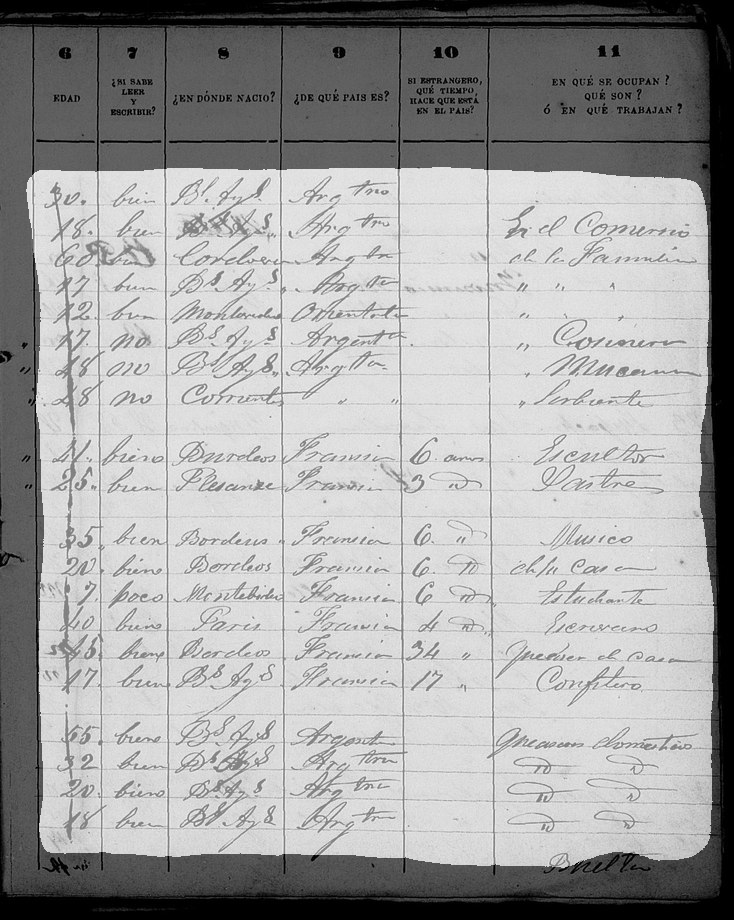 6 7 8 9 10 11
EDAD ¿SI SABE LEER Y ESCRIBIR? ¿EN DÓNDE NACIO? ¿DE QUÉ PAIS ES? SI ESTRANGERO, QUÉ TIEMPO HACE QUE ESTÁ EN EL PAIS? EN QUÉ SE OCUPAN? QUÉ SON? Ó EN QUÉ TRABAJAN?
30. bien Bs. Ays. Argtno
18. bien Bs Ays. Argtno En el Comercio
60 Argtna de la Familia
17 bien Bs Ays. Argtn " " "
12. bien Montevideo Orientala " "
17. no Bs Ays Argentn. " Cosinera
48 no Bs Ays. Argtna. " Mucama
48 no Corrientes " " " Serbiente
41. bieno Burdeos Francia 6 anos Escultor
25. bien Francia 3 " Sastre
35 bien Bordeus Francia 6. " Musico
20. bieno Bordeos Francia 6. de su Casa
7. poco Montebideo Francia 6 Estudiante
40 bieno Paris Francia 4 Escrivano
45. biene Bordeos Francia 34 " de casa
17. bien Bs Ays. Francia 17 " Confitero
55. bieno Bs Ays Argentn domesticos
32 bien Bs Ays Argtna
20. bieno Bs Ays Argtna
18 bien Bs Ays Argtna
Buelta